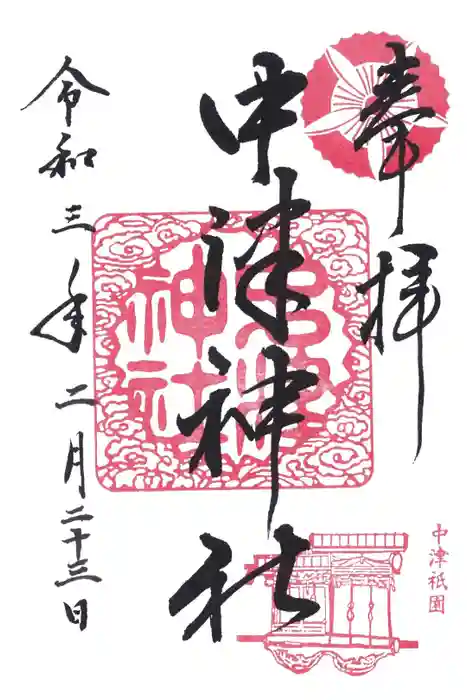 奉拝
中津神社
令和三年二月二十三日
中津神社
中津祇園